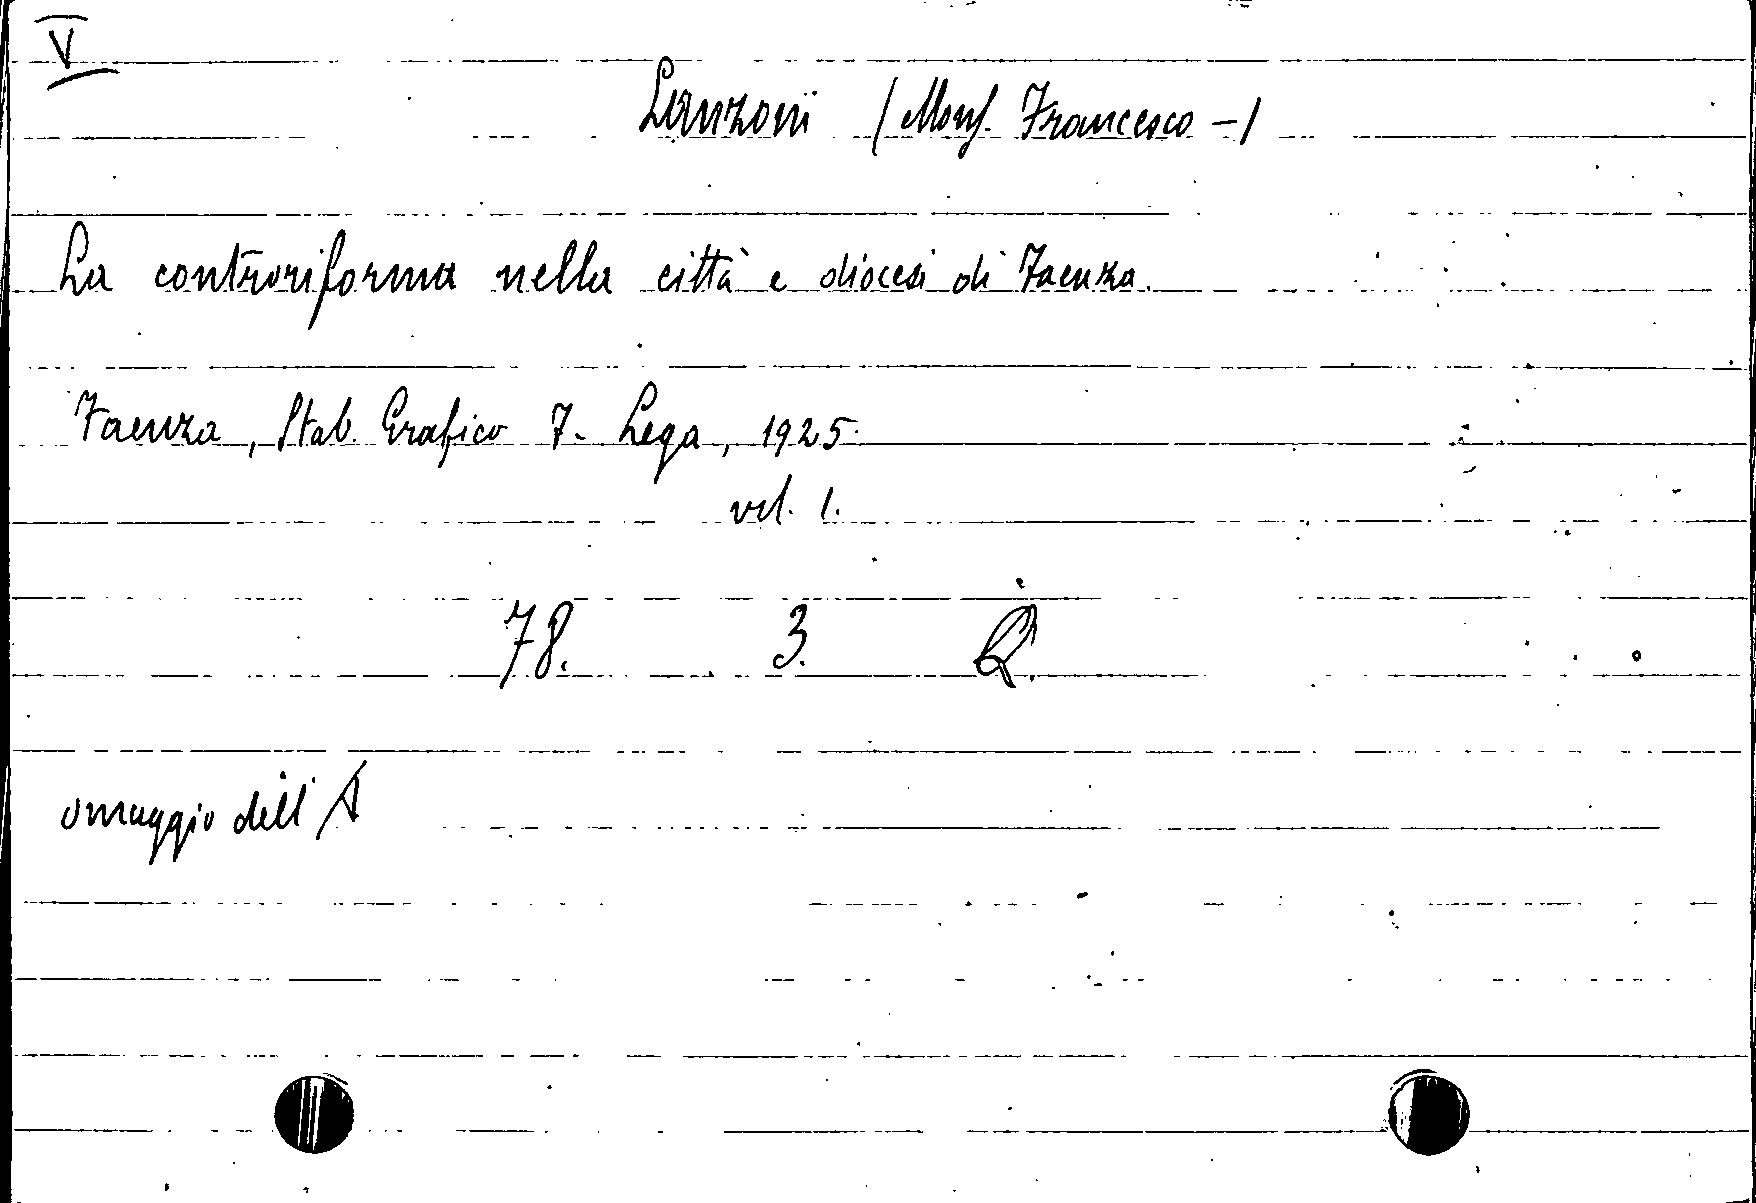 V
Lanzoni (Mons. Francesco -)
La controriforma nella città e diocesi di Faenza.
Faenza, Stab. Grafico F. Lega, 1925.
vol. 1.
78. 3. Q.
omaggio dell'A